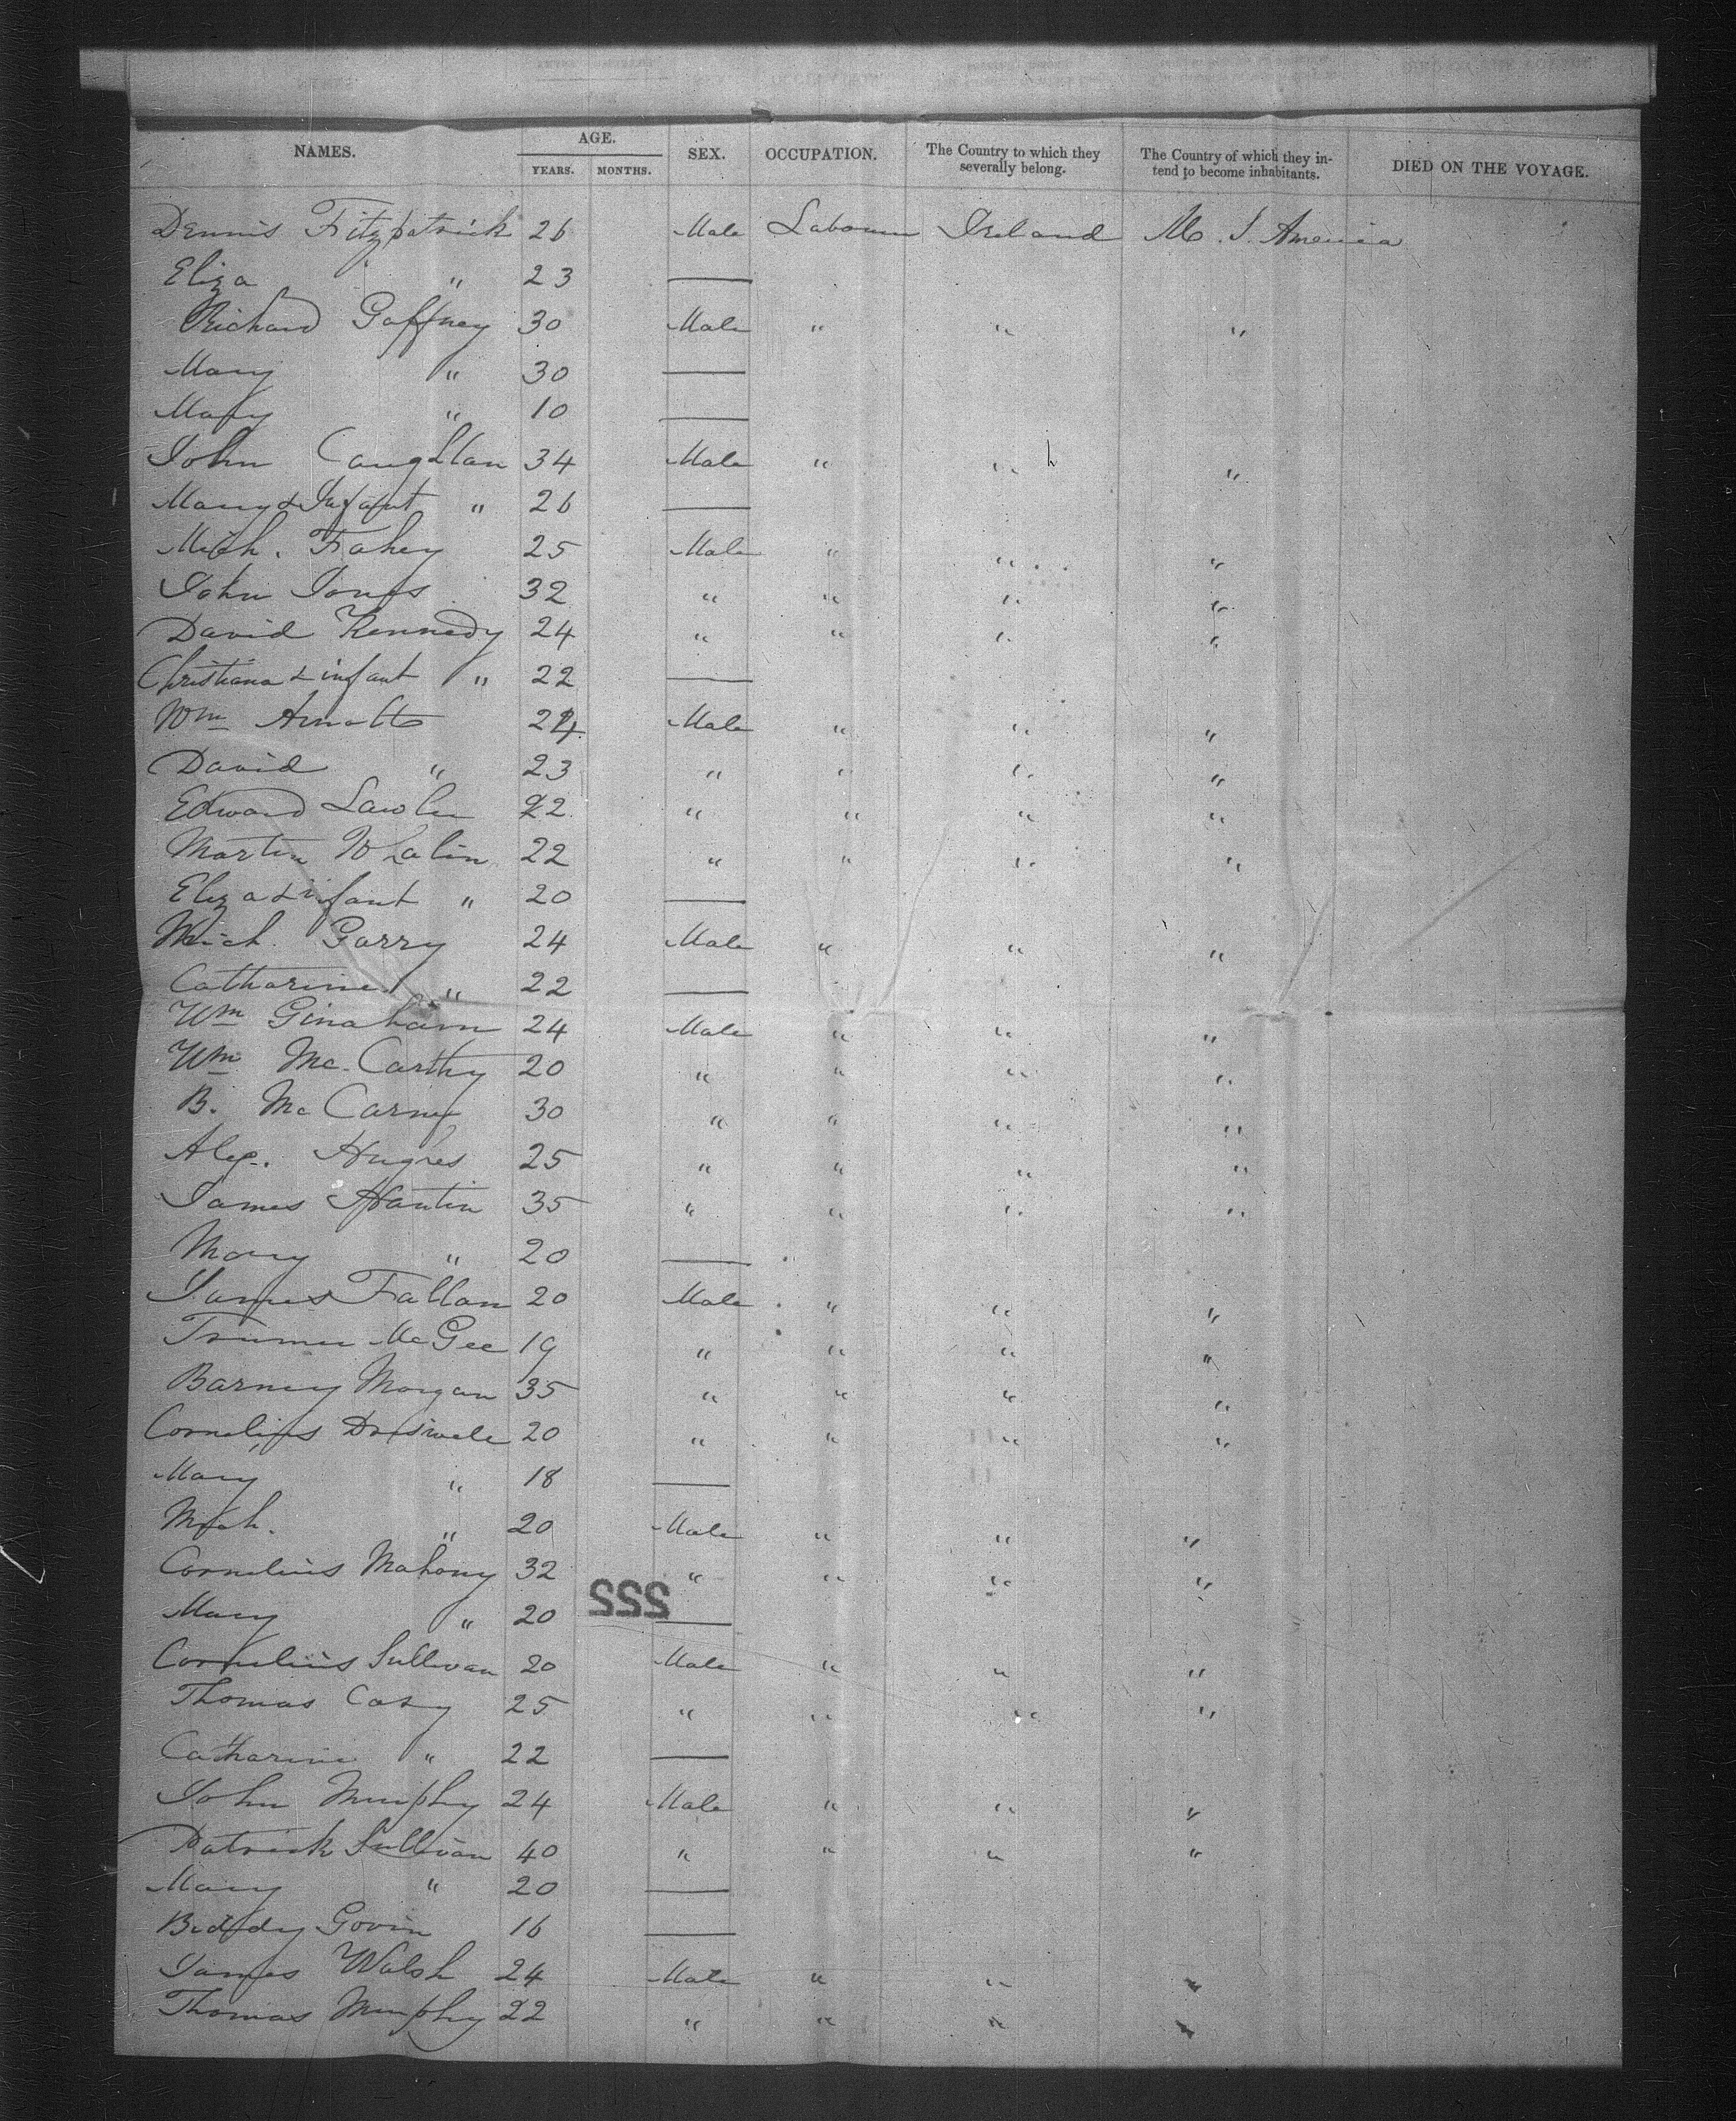 NAMES. AGE. YEARS. MONTHS. SEX. OCCUPATION. The Country to which they severally belong. The Country of which they intend to become inhabitants. DIED ON THE VOYAGE.
Dennis Fitzpatrick 26 Male Labourer Ireland U. S. America
Eliza " 23 —
Richard Gaffney 30 Male " " "
Mary " 30 —
Mary " 10 —
John Coughlan 34 Male " " "
Mary & Infant " 26 —
Mich. Fahey 25 Male " " "
John Jones 32 " " " "
David Kennedy 24 " " " "
Christiana & infant " 22 —
Wm Arnott 24 Male " " "
David " 23 " " " "
Edward Lawler 22 " " " "
Martin Whalin 22 " " " "
Eliza & infant " 20 —
Mich. Garry 24 Male " " "
Catharine " 22 —
Wm Ginaham 24 Male " " "
Wm Mc Carthy 20 " " " "
B. Mc Carny 30 " " " "
Alex. Hughes 25 " " " "
James 35 " " " "
Mary " 20 —
James Fallan 20 Male " " "
McGee 19 " " " "
Barney Morgan 35 " " " "
Cornelius 20 " " " "
Mary " 18 —
Mich. " 20 Male " " "
Cornelius Mahony 32 " " " "
222
Mary " 20 —
Cornelius Sullivan 20 Male " " "
Thomas Casy 25 " " " "
Catharine " 22 —
John Murphy 24 Male " " "
Patrick Sullivan 40 " " " "
Mary " 20 —
Biddy Govin 16 —
James Walsh 24 Male " " "
Thomas Murphy 22 " " " "